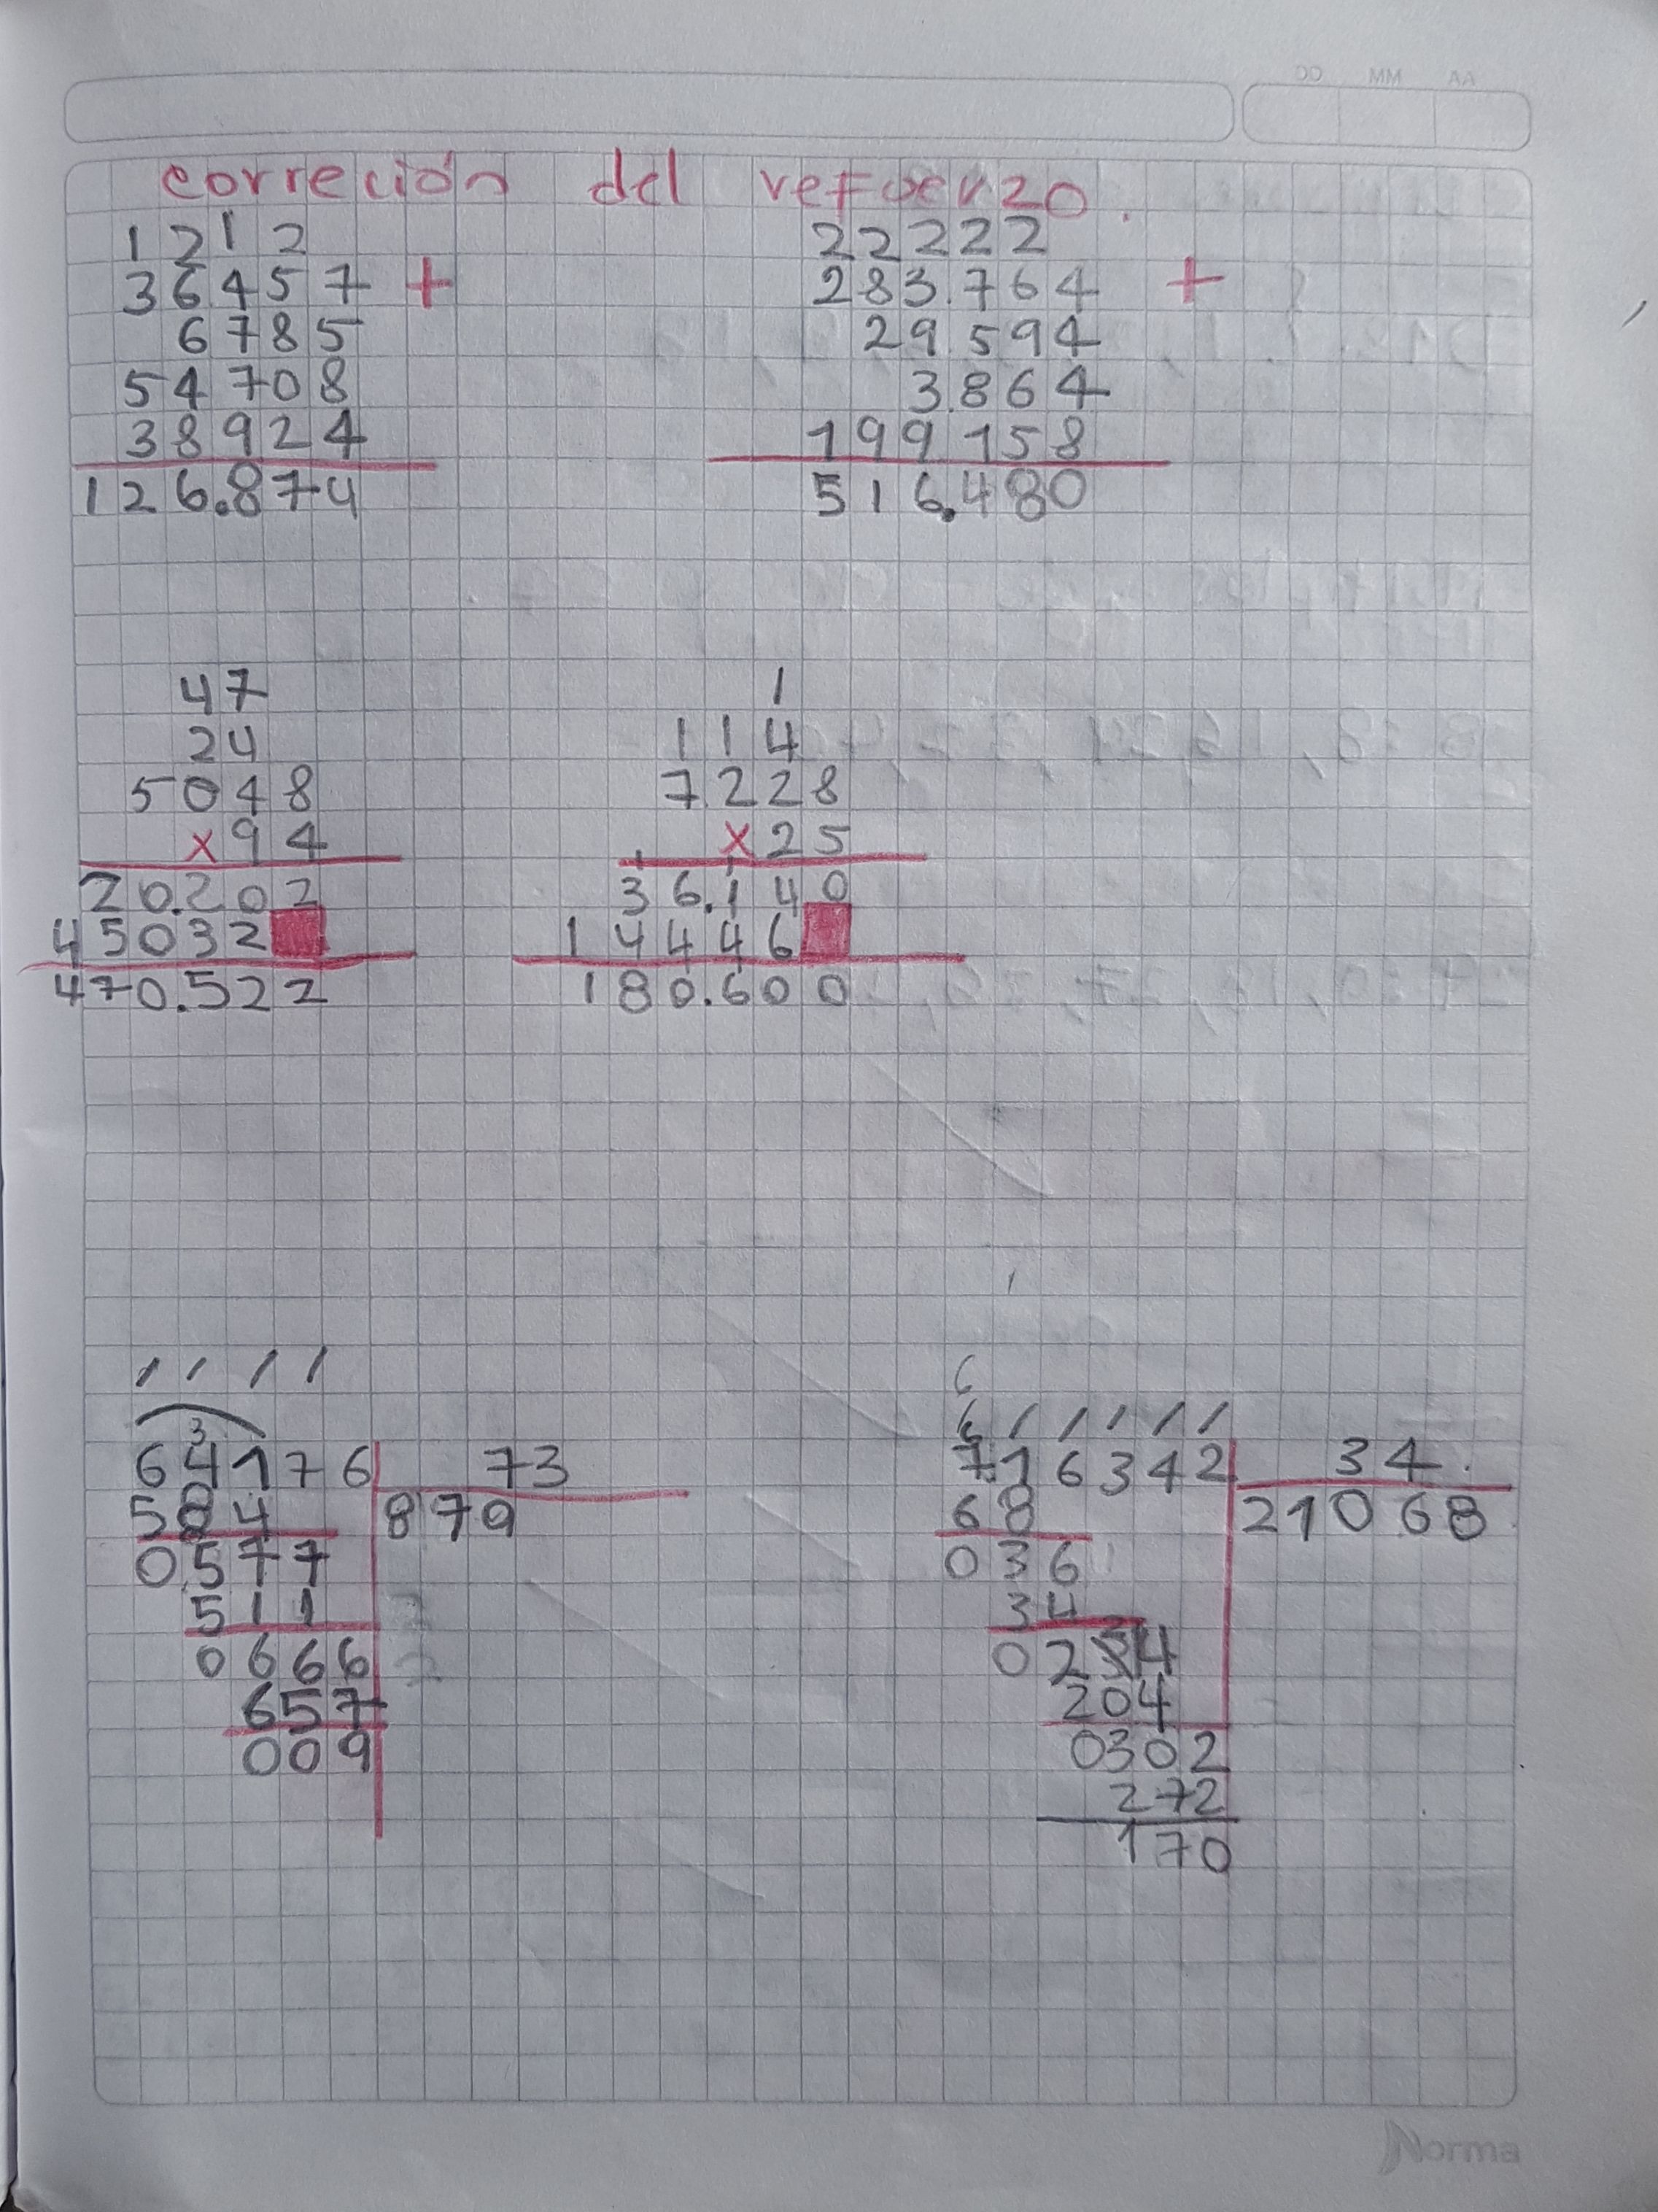 correción del refuerzo.
1 2 1 2
36457 +
6785
54708
38924
126.874
22222
283.764 +
29.594
3.864
199.158
516.480
47
24
5048
x94
20.202
45032
470.522
1
114
7.228
x25
36.140
14446
180.600
3
64176 73
584 879
0577
511
0666
657
009
6
6
7.16342 34
68 21068
036
34
0234
204
0302
272
170
Norma